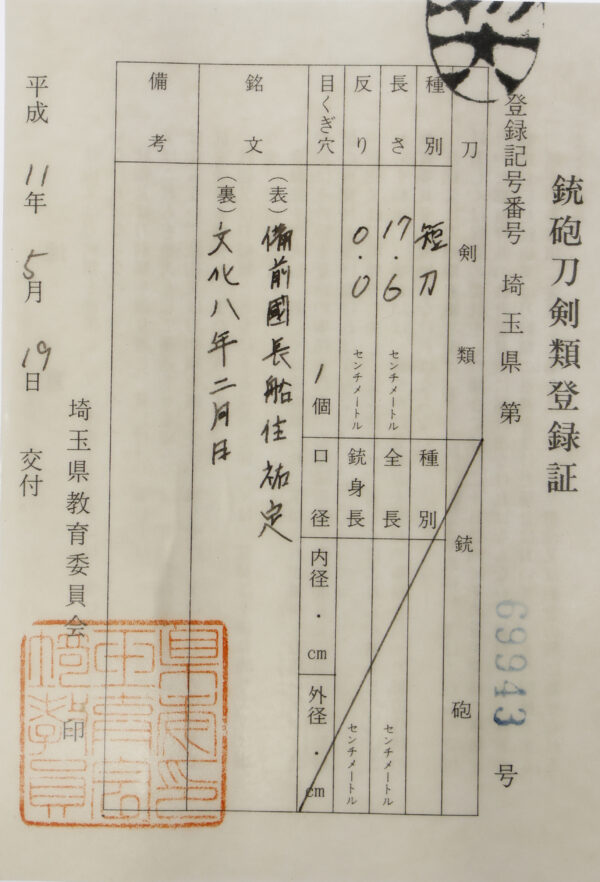 銃砲刀剣類登録証
登録記号番号 埼玉県 第 69943 号
刀剣類
種別 短刀
長さ 17.6 センチメートル
反り 0.0 センチメートル
目くぎ穴 1個
銘文
(表)備前國長船住祐定
(裏)文化八年二月日
備考
銃砲
種別
全長 センチメートル
銃身長 センチメートル
口径 内径・cm 外径・cm
平成11年5月19日 交付
埼玉県教育委員会 印